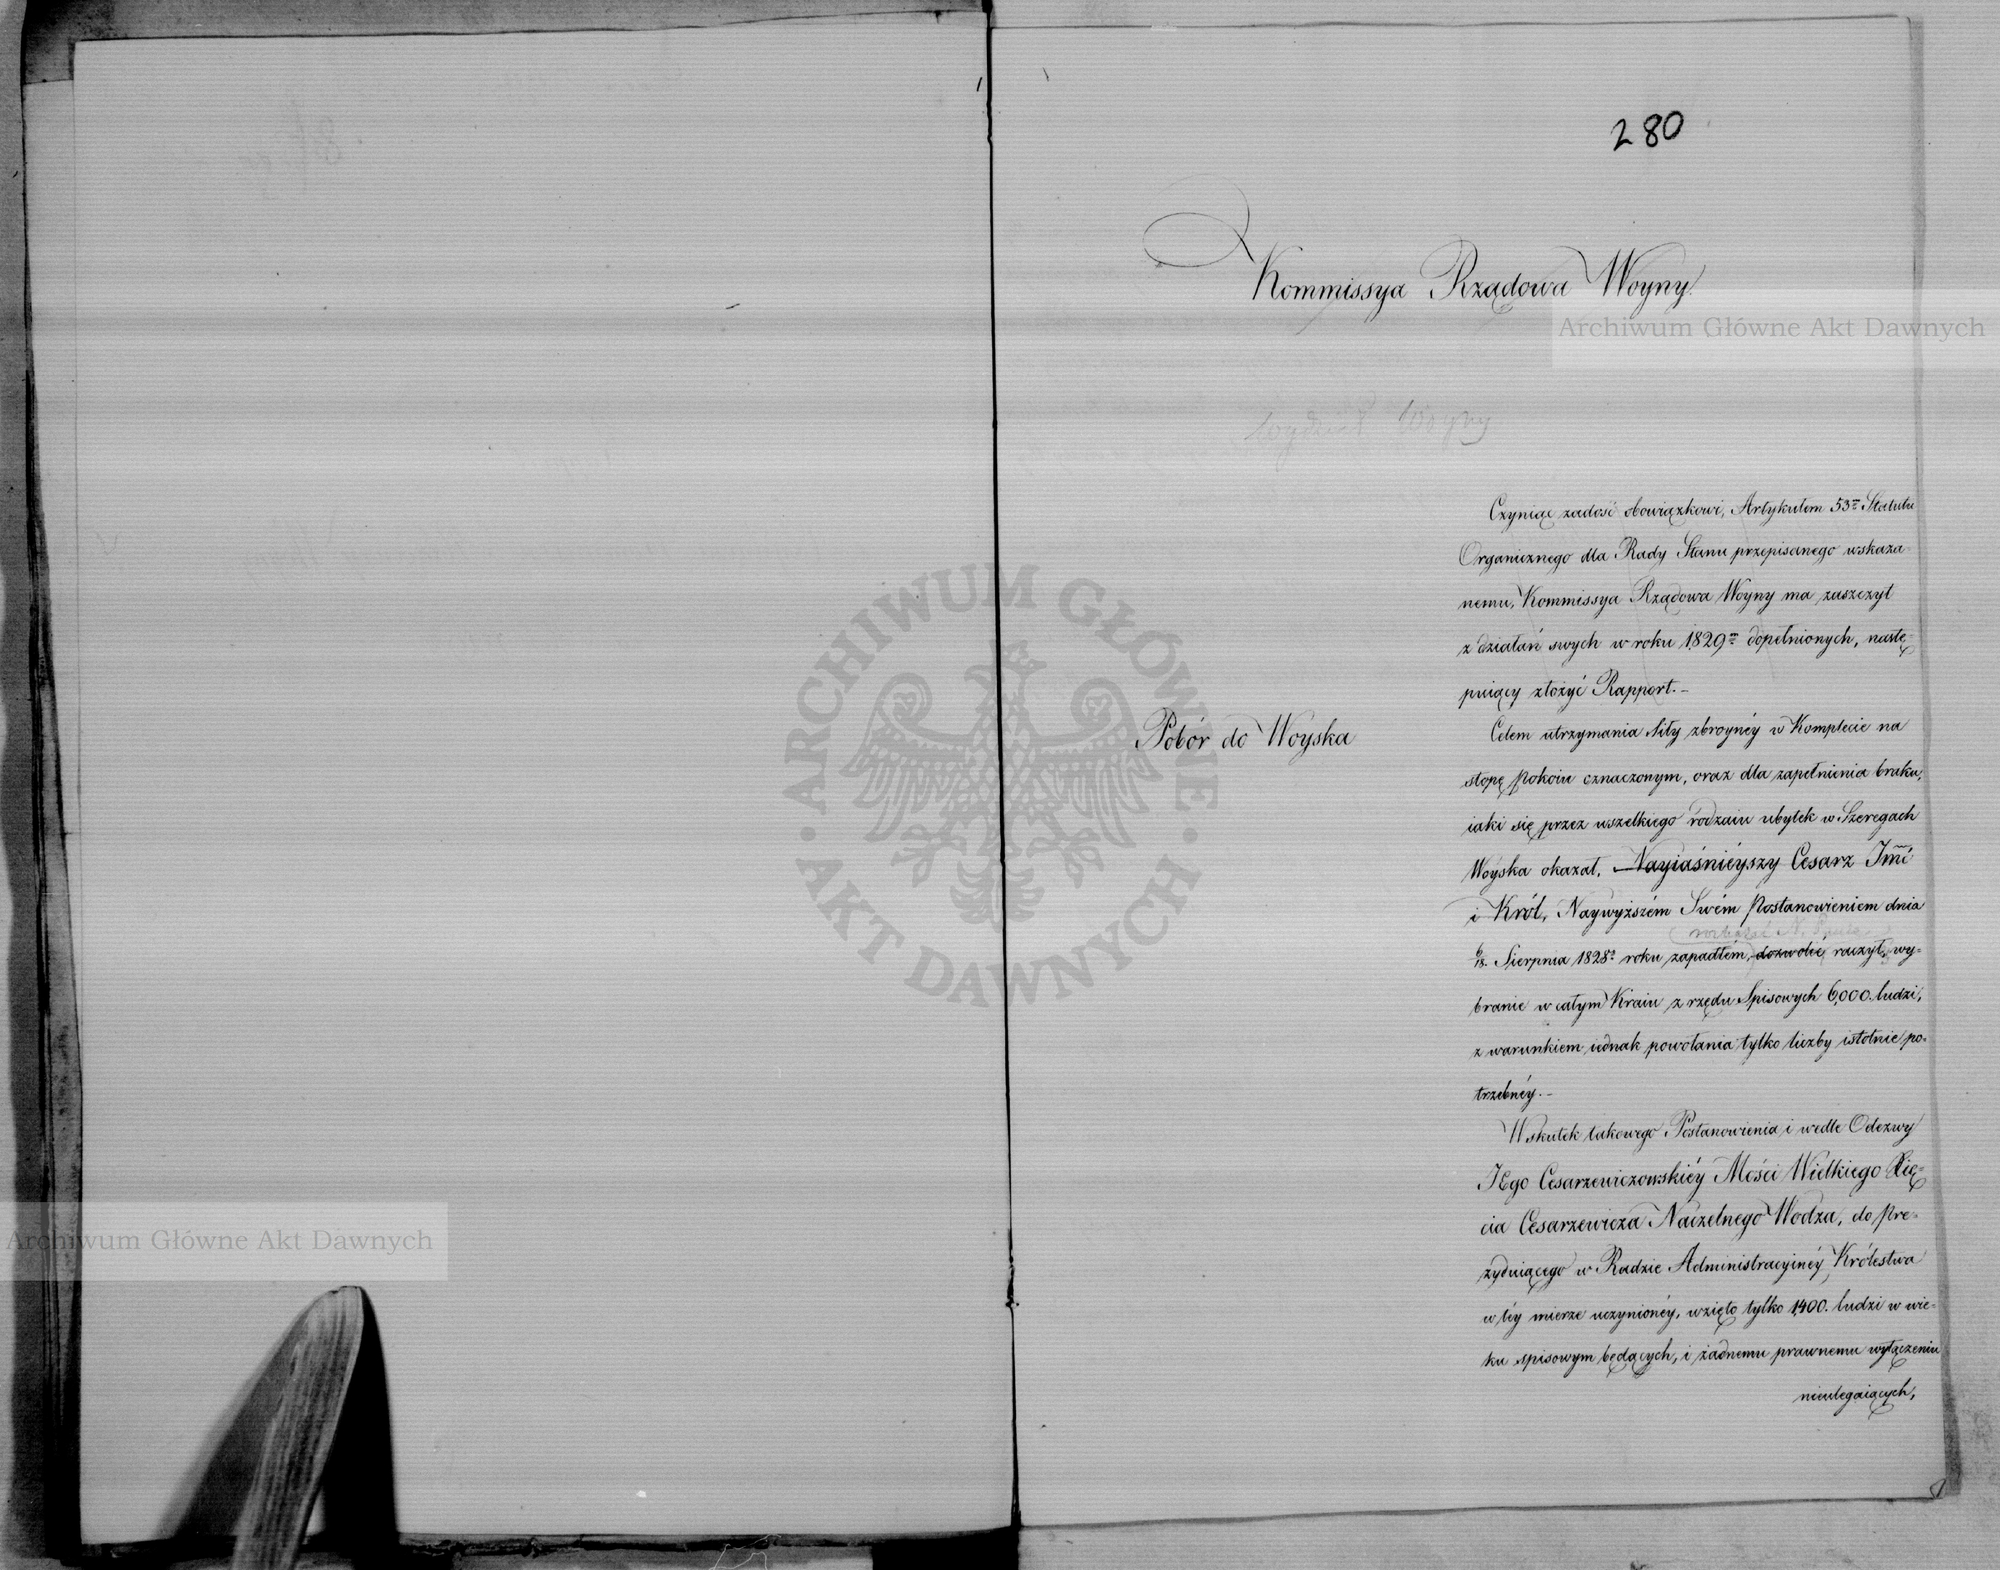 280
Kommissya Rządowa Woyny.
Archiwum Główne Akt Dawnych
Wydział Woyny
Czyniąc zadość obowiązkowi, Artykułem 53m Statutu
Organicznego dla Rady Stanu przepisanego wskaza-
nemu, Kommissya Rządowa Woyny ma zaszczyt
z działań swych w roku 1829m dopełnionych, nastę-
puiący złożyć Rapport.-
Pobór do Woyska
Celem utrzymania Siły zbroynéy w Komplecie na
stopę pokoiu oznaczonym, oraz dla zapełnienia braku,
iaki się przez wszelkiego rodzaiu ubytek w Szeregach
Woyska okazał, Nayiaśnieyszy Cesarz Jmć
i Król, Naywyższém Swém Postanowieniem dnia
6/18. Sierpnia 1828o roku zapadłém, dozwolić raczył, wy-
branie w całym Kraiu z rzędu Spisowych 6,000. ludzi,
z warunkiem iednak powołania tylko liczby istotnie po-
trzebnéy.-
Wskutek takowego Postanowienia i wedle Odezwy
JEgo Cesarzewiczowskiéy Mości Wielkiego Xię-
cia Cesarzewicza Naczelnego Wodza, do Pre-
zyduiącego w Radzie Administracyinéy Królestwa
w téy mierze uczynionéy, wzięto tylko 1400. ludzi w wie-
ku spisowym będących, i żadnemu prawnemu wyłączeniu
nieulegaiących,
ARCHIWUM GŁÓWNE
AKT DAWNYCH
Archiwum Główne Akt Dawnych